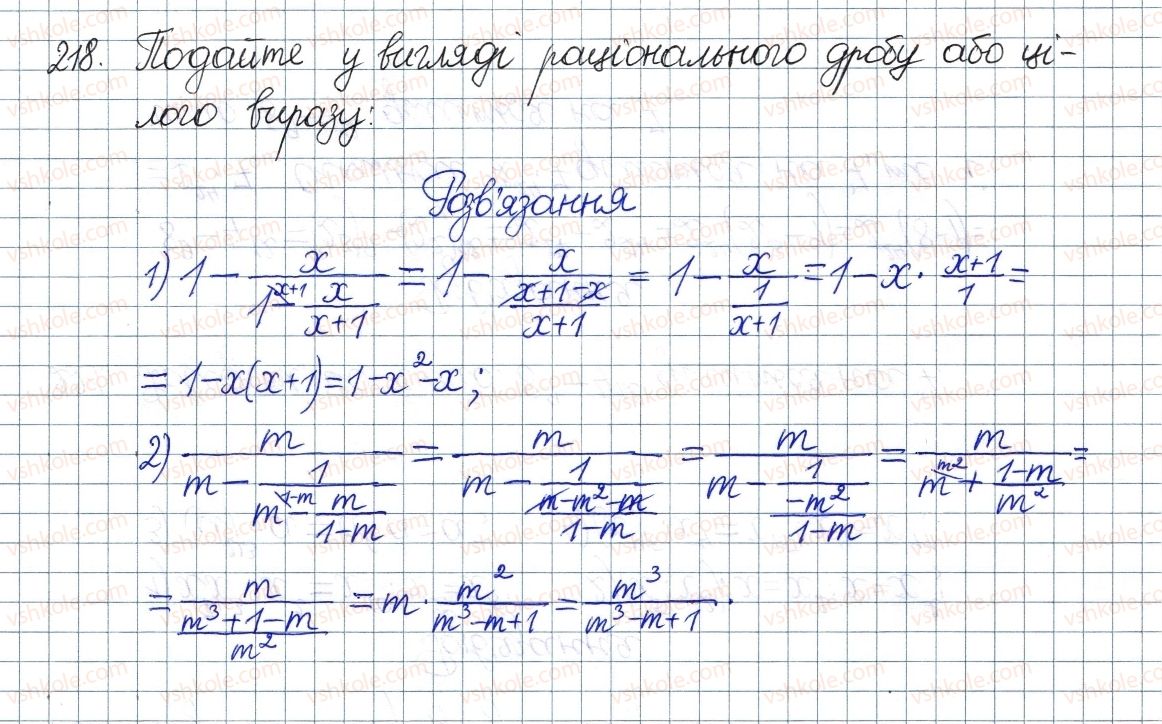 218. Подайте у вигляді раціонального дробу або ці-
лого виразу:
Розв'язання
1) 1 - x/(1^{x+1} - x/(x+1)) = 1 - x/((x+1-x)/(x+1)) = 1 - x/(1/(x+1)) = 1 - x · (x+1)/1 =
= 1-x(x+1) = 1-x²-x;
2) m/(m - 1/(m^{1-m} - m/(1-m))) = m/(m - 1/((m-m²-m)/(1-m))) = m/(m - 1/((-m²)/(1-m))) = m/(m^{m²} + (1-m)/m²) =
= m/((m³+1-m)/m²) = m · m²/(m³-m+1) = m³/(m³-m+1).